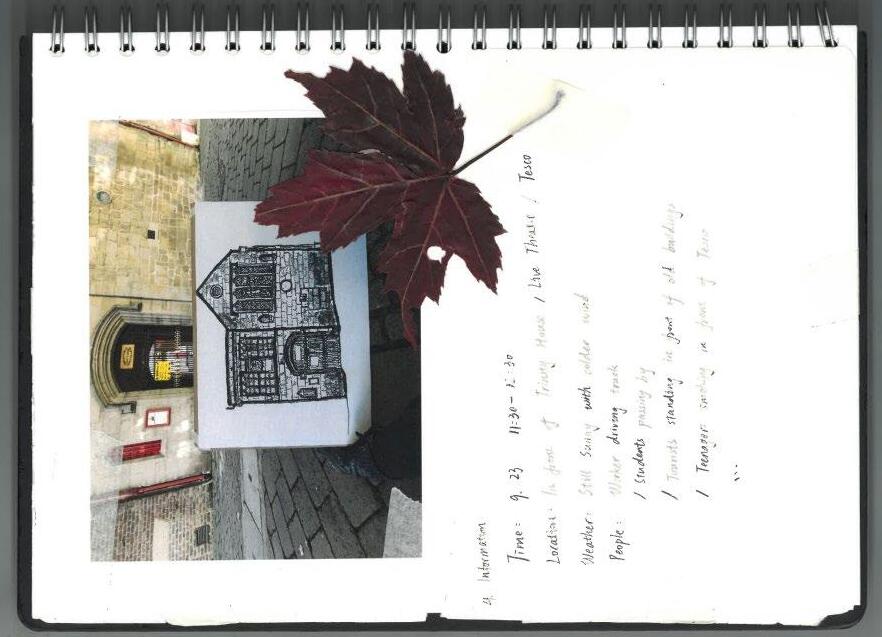 4. Information
Time: 9. 23 11:30 - 12:30
Location: In front of Trinity House / Live Theatre / Tesco
Weather: Still Sunny with colder wind
People: Worker driving truck
/ Students passing by
/ Tourists standing in front of old buildings
/ Teenagers smoking in front of Tesco
...